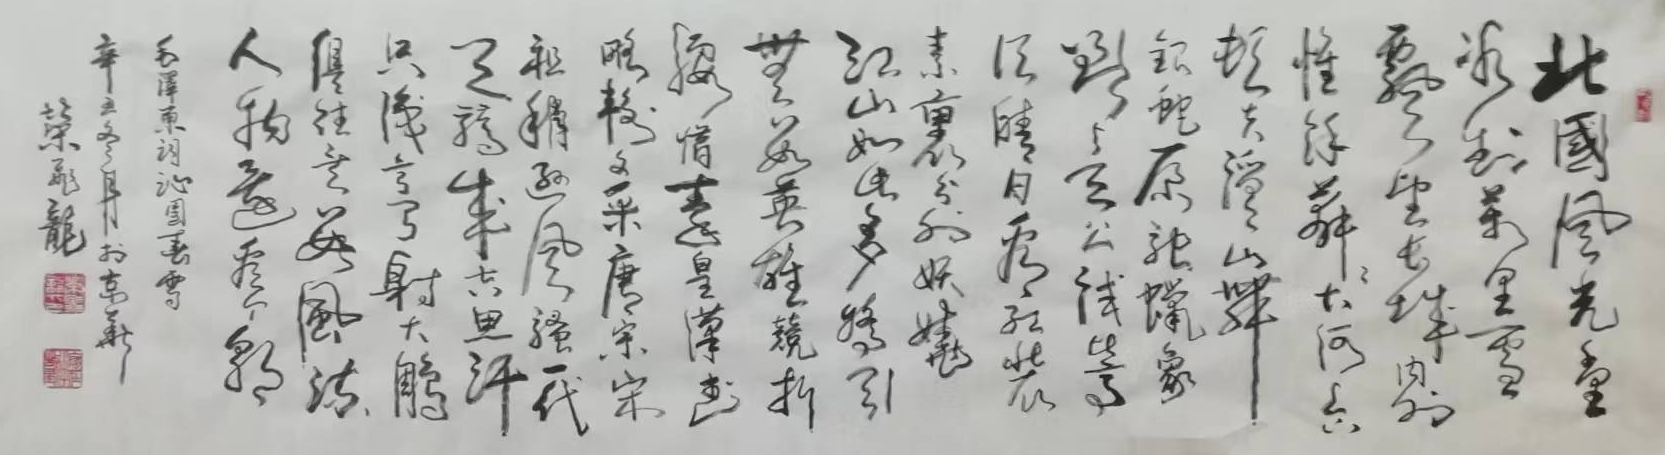 北國风光千里
冰封萬里雪
飄望長城内外
惟餘莽々大河上下
頓失滔々山舞
銀蛇原馳蠟象
欲与天公試比高
須晴日看紅裝
素裹分外妖嬈
江山如此多嬌引
無數英雄競折
腰惜秦皇漢武
略輸文采唐宗宋
祖稍遜风騷一代
天驕成吉思汗
只識彎弓射大鵰
俱往矣數風流
人物還看今朝
毛澤東詞沁園春雪
辛丑冬月於京華
飛龍